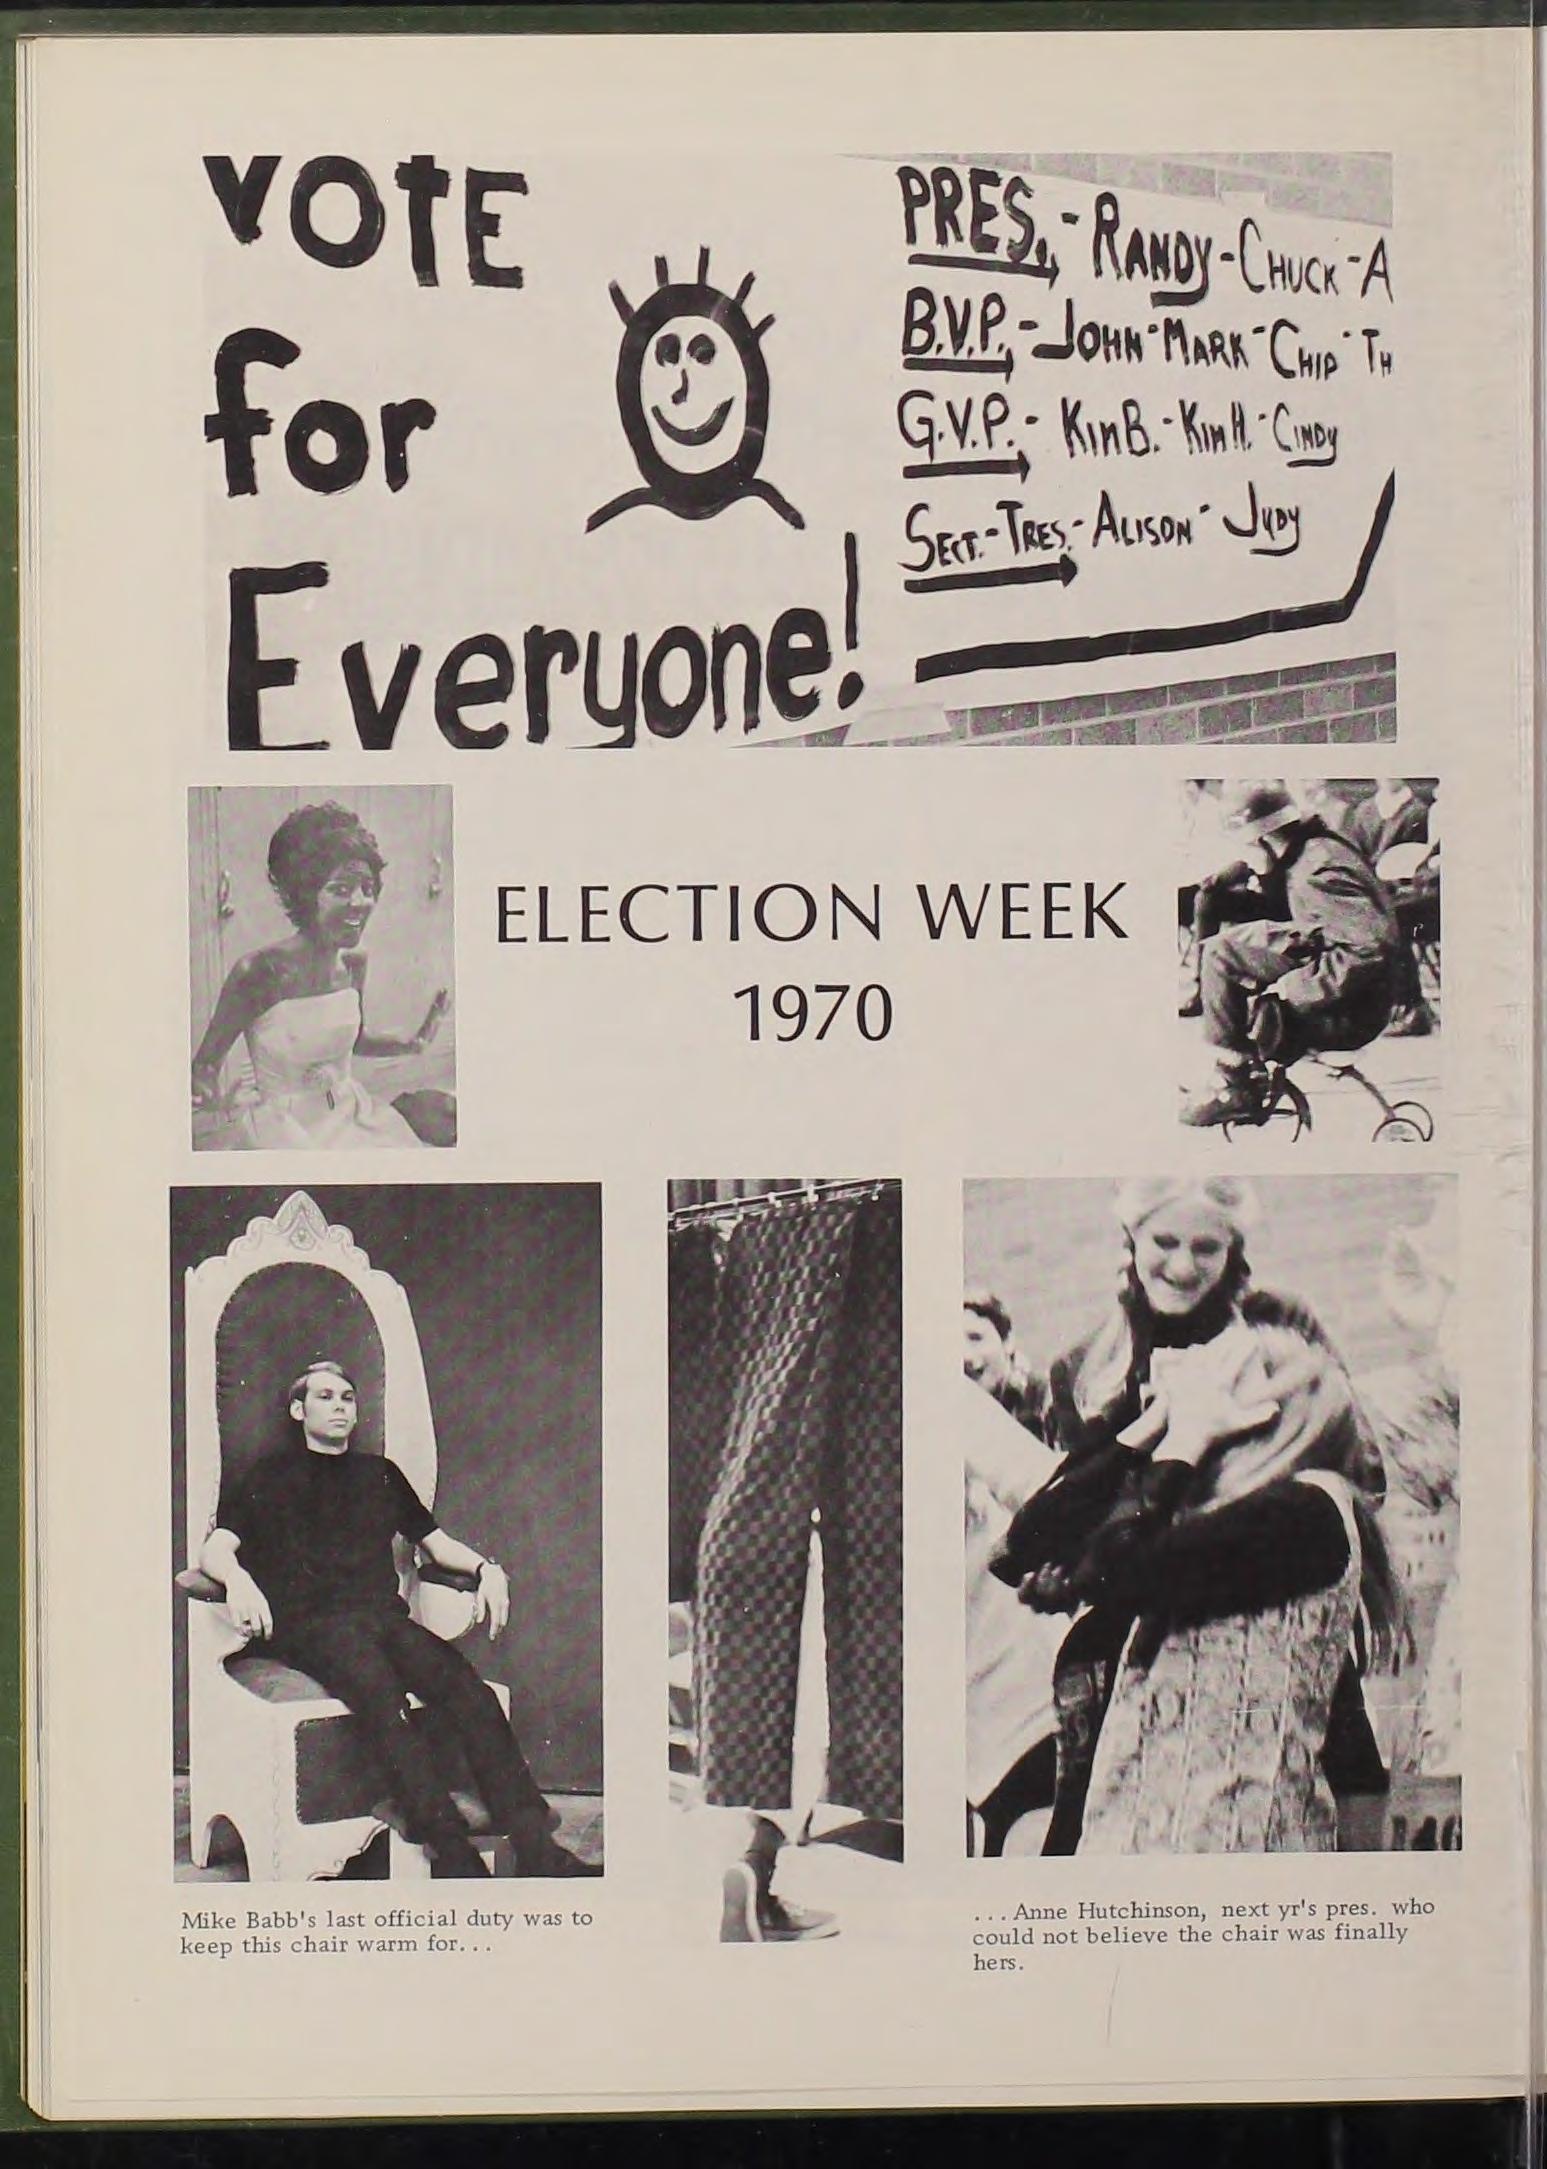 VOTE
for
Everyone!
PRES. - RANDY - CHUCK - A
B.V.P. - JOHN - MARK - CHIP - TH
G.V.P. - KIM B. - KIM H. - CINDY
SECT. - TRES. - ALISON - JUDY
ELECTION WEEK
1970
Mike Babb's last official duty was to
keep this chair warm for...
...Anne Hutchinson, next yr's pres. who
could not believe the chair was finally
hers.